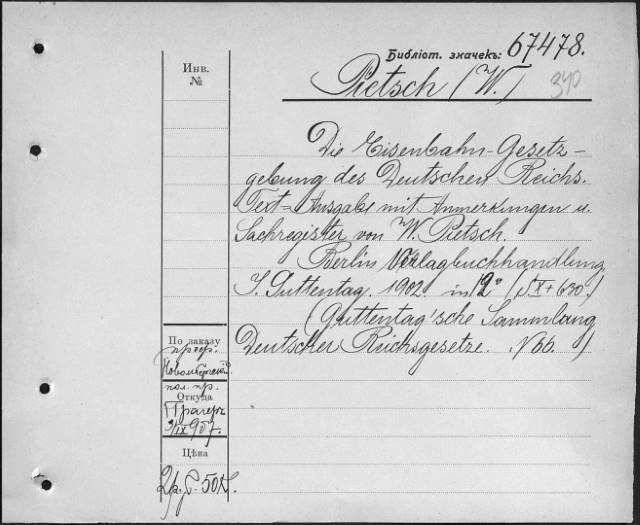 Библіот. значекъ: 67478.
Инв.
№
Pietsch (W.) 340
Die Eisenbahn-Gesetz-
gebung des Deutschen Reichs.
Text-Ausgabe mit Anmerkungen u.
Sachregister von W. Pietsch.
Berlin Verlagbuchhandlung
J. Guttentag. 1902. in 12° (SX+630.)
(Guttentag'sche Sammlung
Deutscher Reichsgesetze. №66.)
По заказу
проф.
пол. пр.
Откуда
Трагеръ
9/IX 907.
Цѣна
2р. 50к.